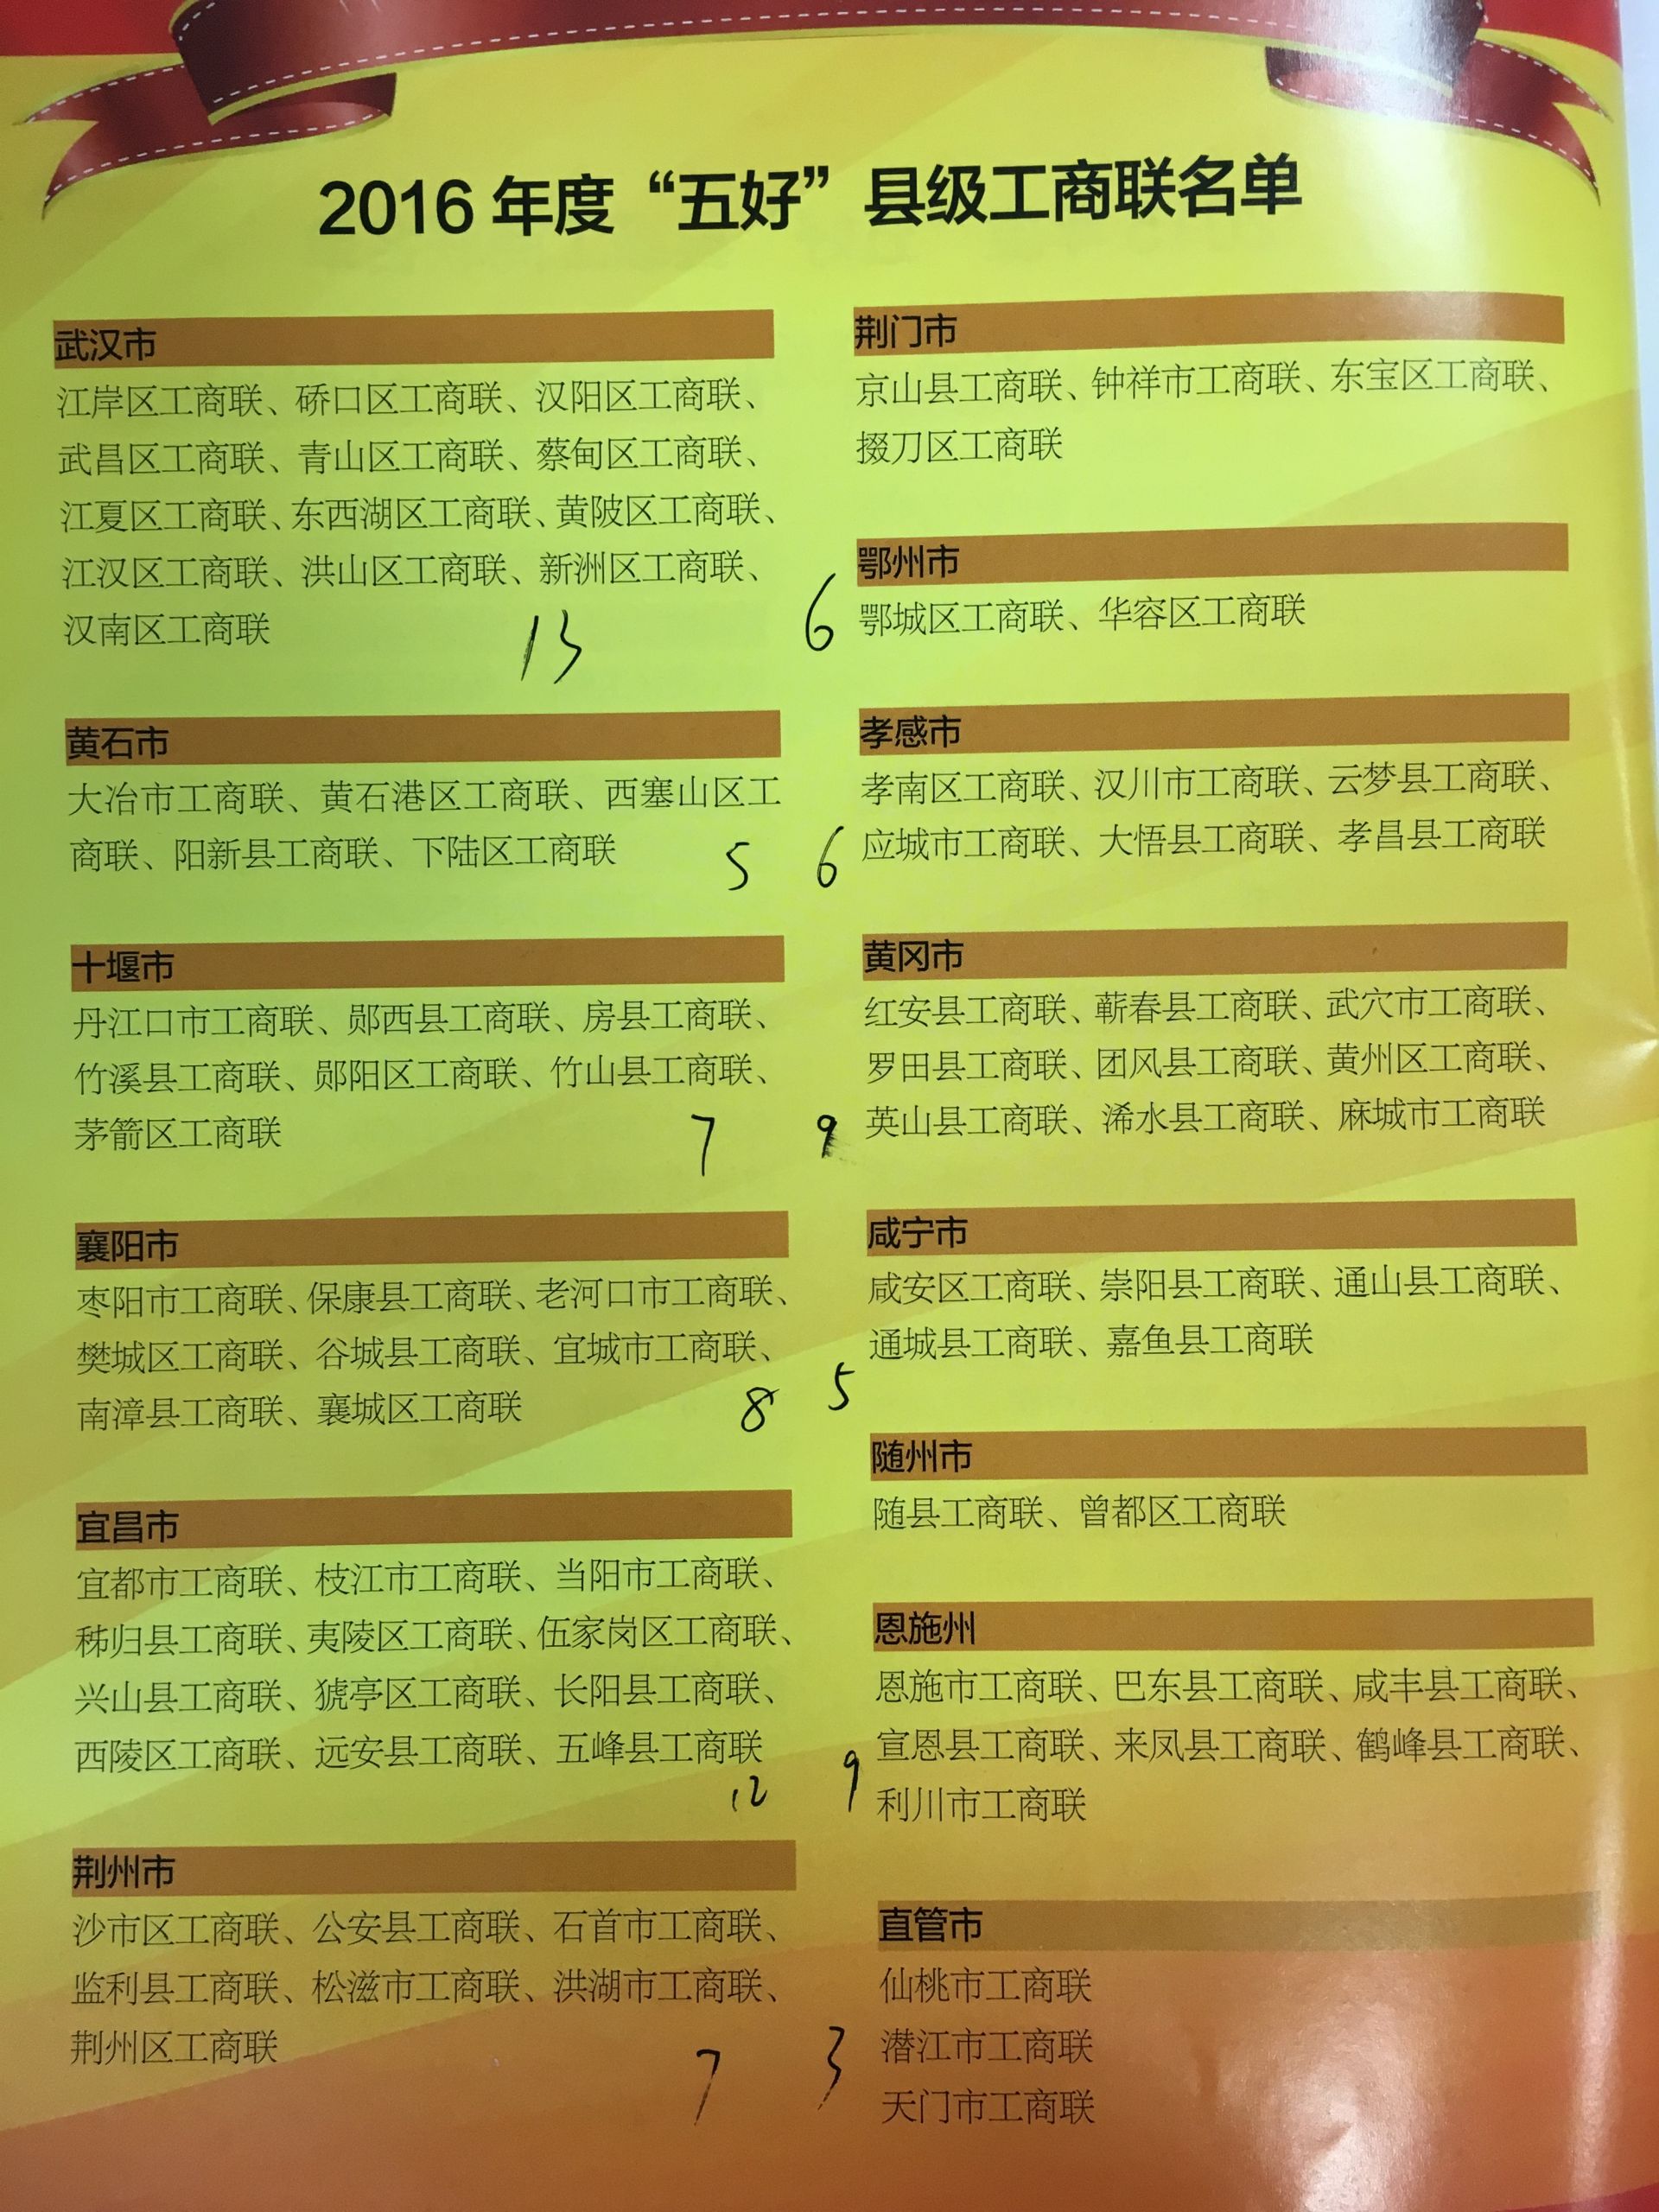 2016 年度“五好”县级工商联名单
武汉市
江岸区工商联、硚口区工商联、汉阳区工商联、
武昌区工商联、青山区工商联、蔡甸区工商联、
江夏区工商联、东西湖区工商联、黄陂区工商联、
江汉区工商联、洪山区工商联、新洲区工商联、
汉南区工商联
13
黄石市
大冶市工商联、黄石港区工商联、西塞山区工
商联、阳新县工商联、下陆区工商联
5
十堰市
丹江口市工商联、郧西县工商联、房县工商联、
竹溪县工商联、郧阳区工商联、竹山县工商联、
茅箭区工商联
7
襄阳市
枣阳市工商联、保康县工商联、老河口市工商联、
樊城区工商联、谷城县工商联、宜城市工商联、
南漳县工商联、襄城区工商联
8
宜昌市
宜都市工商联、枝江市工商联、当阳市工商联、
秭归县工商联、夷陵区工商联、伍家岗区工商联、
兴山县工商联、猇亭区工商联、长阳县工商联、
西陵区工商联、远安县工商联、五峰县工商联
12
荆州市
沙市区工商联、公安县工商联、石首市工商联、
监利县工商联、松滋市工商联、洪湖市工商联、
荆州区工商联
7
荆门市
京山县工商联、钟祥市工商联、东宝区工商联、
掇刀区工商联
鄂州市
6
鄂城区工商联、华容区工商联
孝感市
孝南区工商联、汉川市工商联、云梦县工商联、
应城市工商联、大悟县工商联、孝昌县工商联
6
黄冈市
红安县工商联、蕲春县工商联、武穴市工商联、
罗田县工商联、团风县工商联、黄州区工商联、
英山县工商联、浠水县工商联、麻城市工商联
9
咸宁市
咸安区工商联、崇阳县工商联、通山县工商联、
通城县工商联、嘉鱼县工商联
5
随州市
随县工商联、曾都区工商联
恩施州
恩施市工商联、巴东县工商联、咸丰县工商联、
宣恩县工商联、来凤县工商联、鹤峰县工商联、
利川市工商联
9
直管市
仙桃市工商联
潜江市工商联
天门市工商联
3